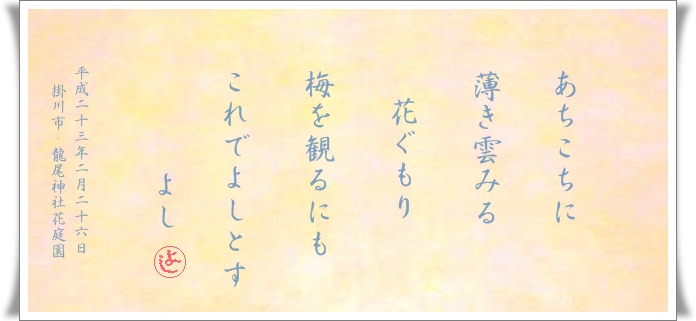 あちこちに
薄き雲みる
花ぐもり
梅を観るにも
これでよしとす
よし
よし
平成二十三年二月二十六日
掛川市・龍尾神社花庭園